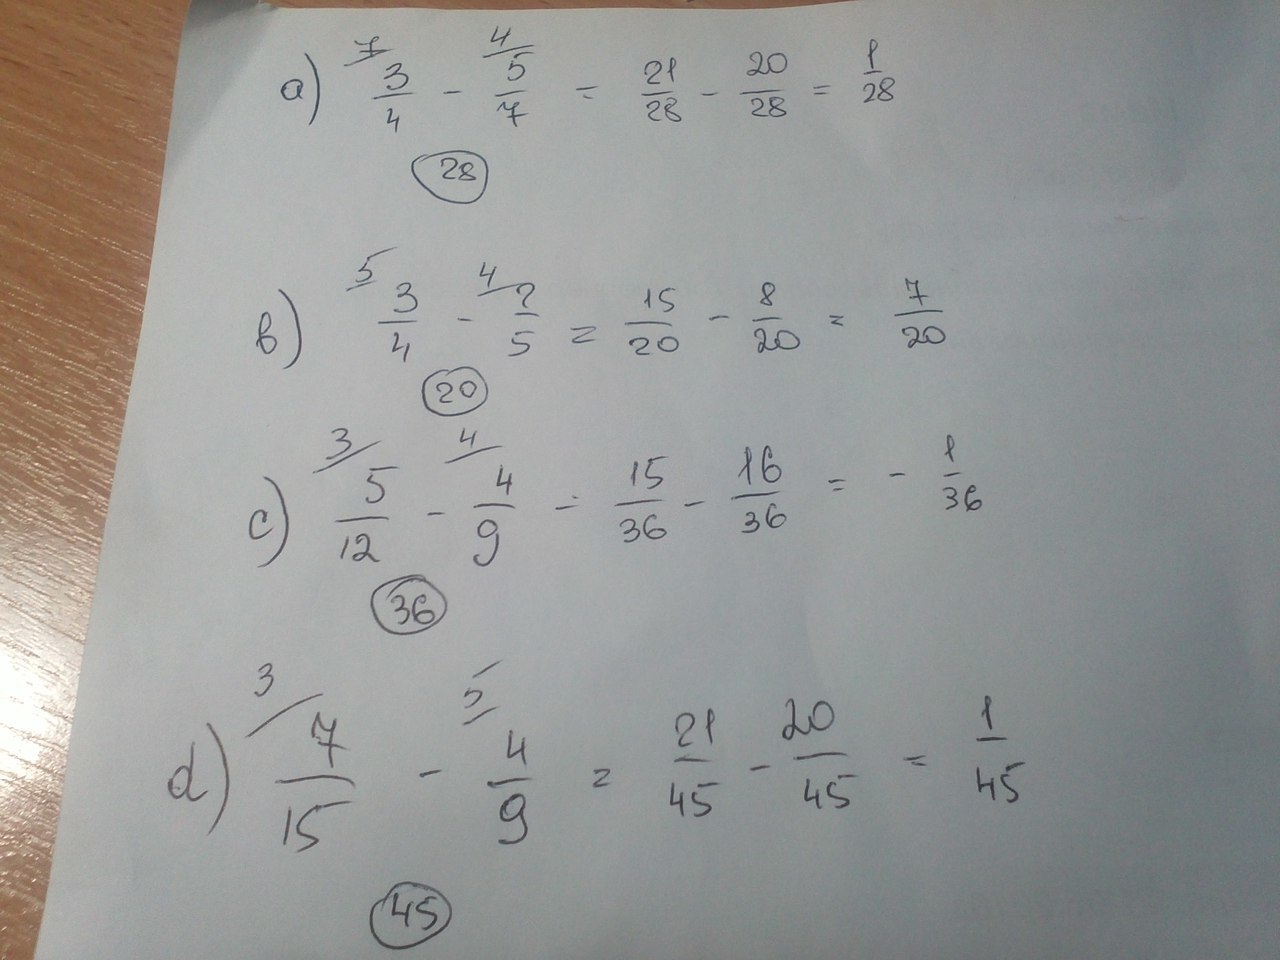 a) 7/ 3/4 - 4/ 5/7 = 21/28 - 20/28 = 1/28
28
b) 5/ 3/4 - 4/ 2/5 = 15/20 - 8/20 = 7/20
20
c) 3/ 5/12 - 4/ 4/9 = 15/36 - 16/36 = - 1/36
36
d) 3/ 7/15 - 5/ 4/9 = 21/45 - 20/45 = 1/45
45